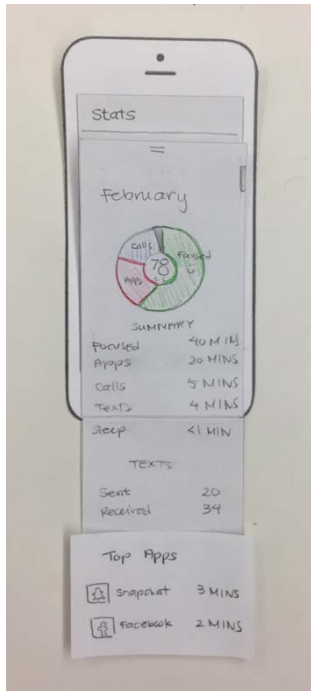 Stats
February
Calls
Focused
78
Apps
SUMMARY
Focused 40 MINS
Apps 20 MINS
Calls 5 MINS
Texts 4 MINS
Sleep <1 MIN
TEXTS
Sent 20
Received 34
Top Apps
Snapchat 3 MINS
Facebook 2 MINS